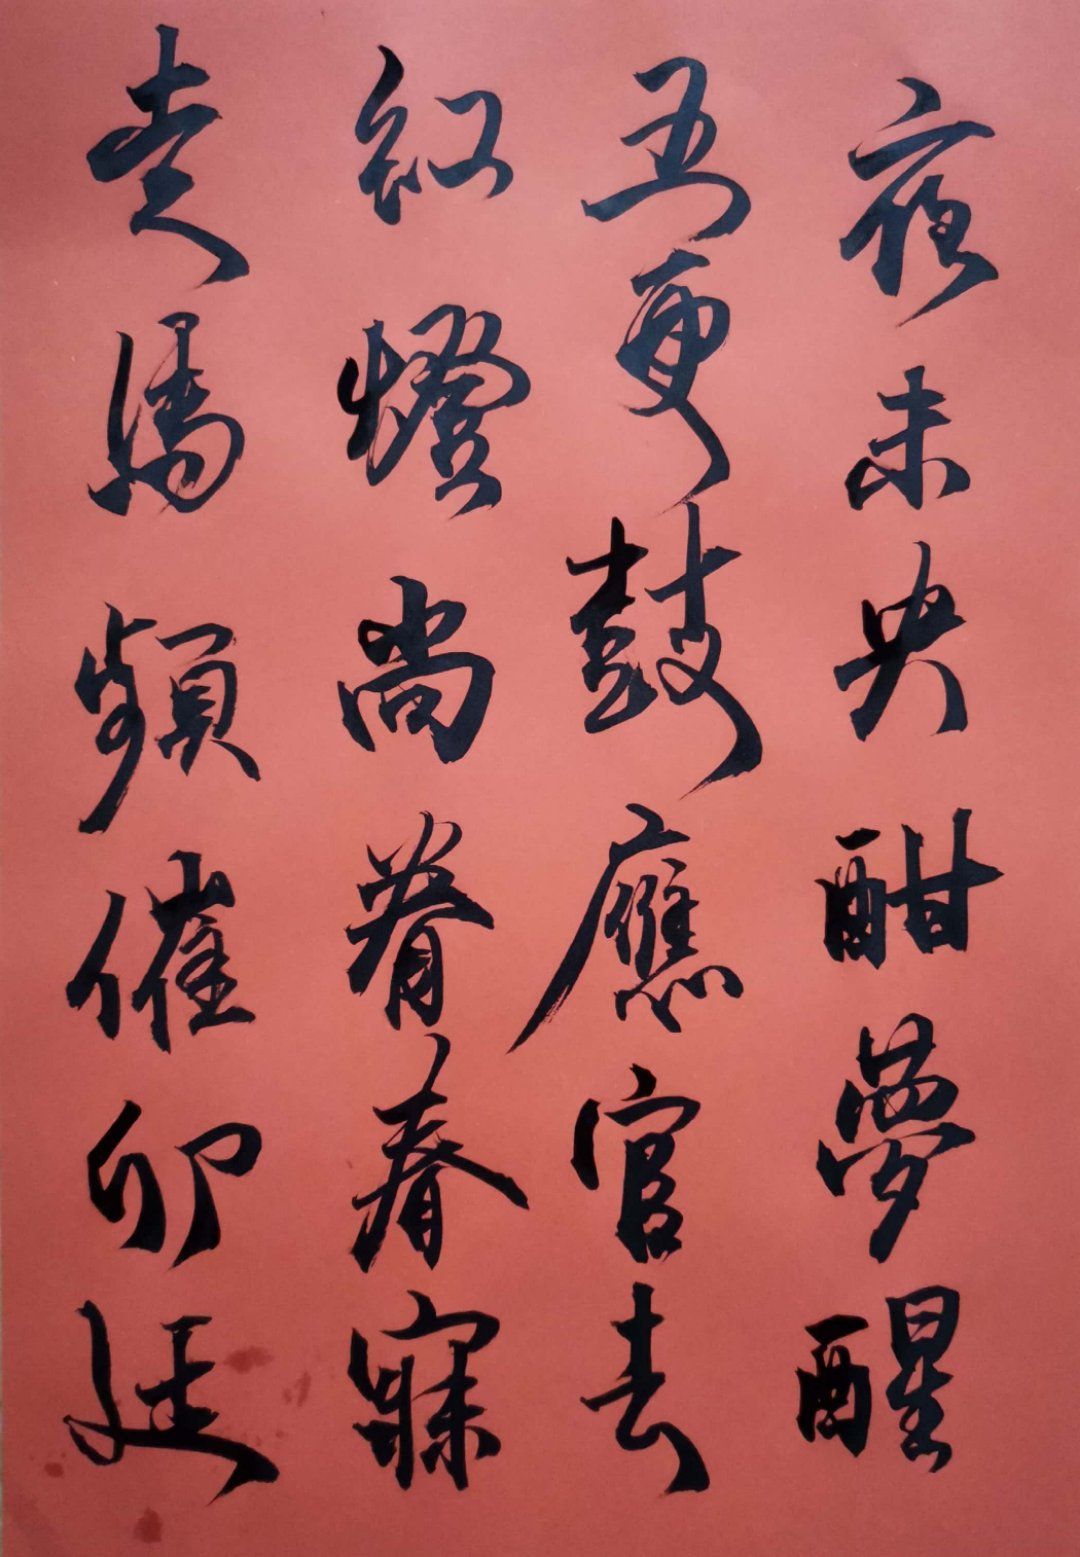 夜未央酣夢醒
五更鼓應官去
紅燈尚眷春寐
走馬頻催卯廷